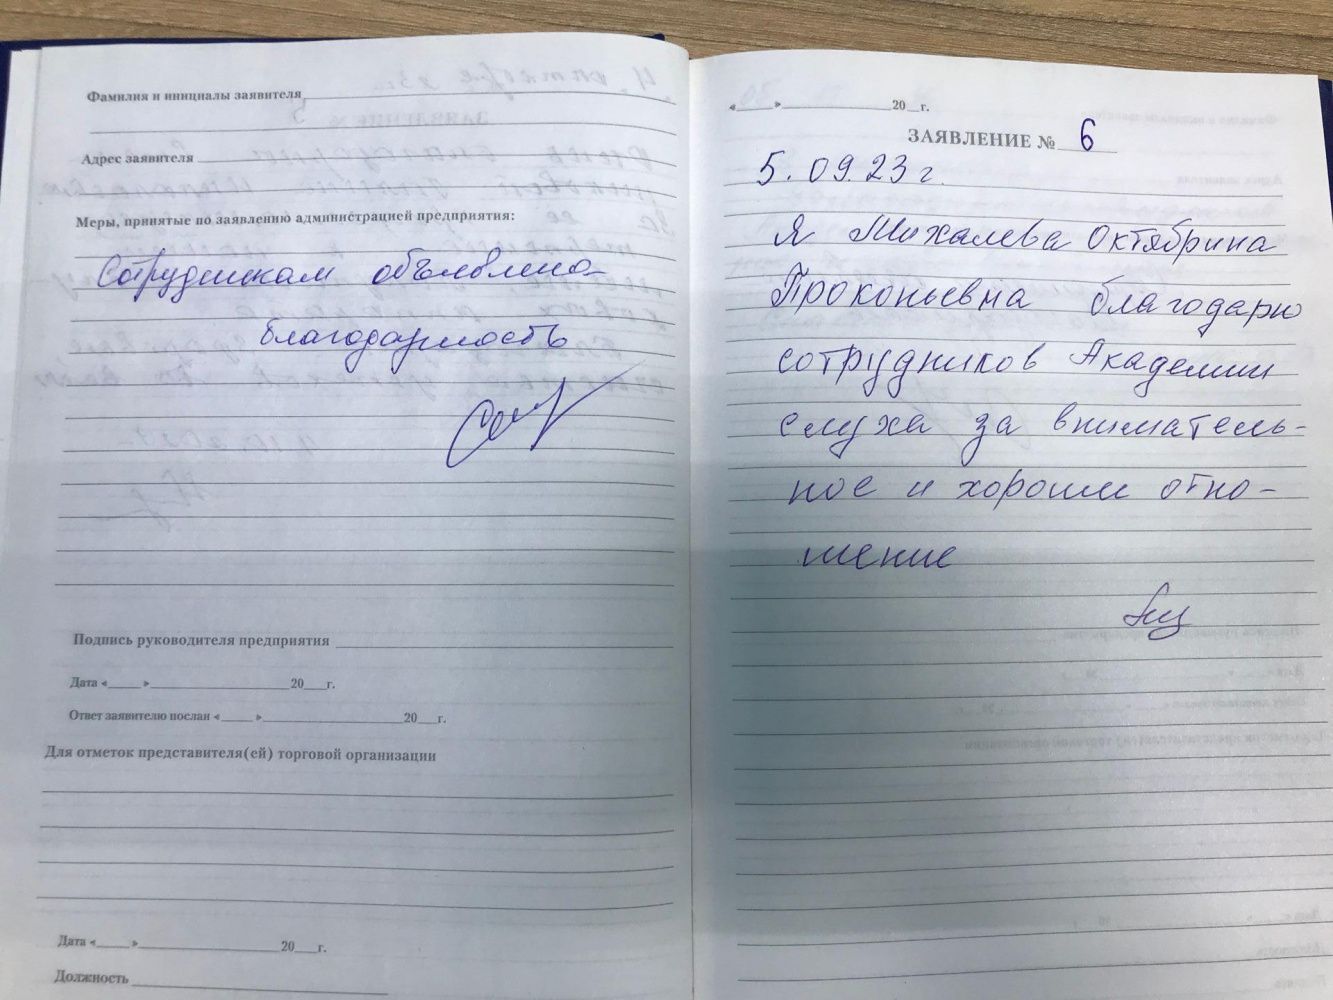 Фамилия и инициалы заявителя
Адрес заявителя
Меры, принятые по заявлению администрацией предприятия:
Сотрудникам объявлена
благодарность
Подпись руководителя предприятия
Дата «____» ____________ 20__г.
Ответ заявителю послан «____» ____________ 20__г.
Для отметок представителя(ей) торговой организации
Дата «____» ____________ 20__г.
Должность
«____» ____________ 20__г.
ЗАЯВЛЕНИЕ № 6
5.09.23 г.
Я Михалева Октябрина
Прокопьевна благодарю
сотрудников Академии
слуха за вниматель-
ное и хорошее отно-
шение